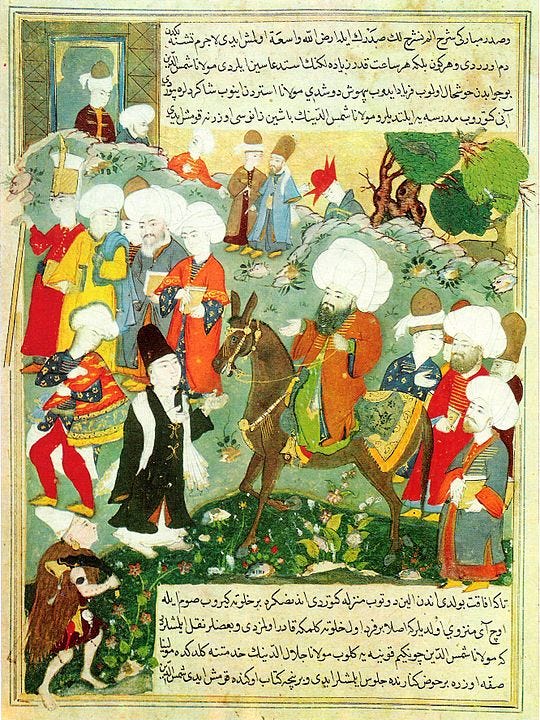 وصدر مبارکی شرح الم نشرح لك صدرك ایله ارض الله واسعة اولمش ایدی لاجرم تشنه
دم اوردی وهر کون بلکه هر ساعت قدر زیاده لکنی استدعاسین ایلردی مولانا شمس الدین
بو جوابدن خوشحال اولوب فریاد ایدوب بیهوش دوشدی مولانا استردن اینوب شاکردلره بیوردی
آنی کوتوروب مدرسه یه ایلتدیلر و مولانا شمس الدینك باشین زانوسی اوزرنه قومش ایدی
تا که افاقت بولدی اندن الین دوتوب منزله کوتردی اندنصکره بر خلوته کیروب صوم ایله
اوچ آی منزوی اولدیلر که اصلا بر فرد اول خلوته کلمکه قادر اولمزدی وبعضلر نقل ایلمشلردر
که مولانا شمس الدین چونکیم قونیه یه کلوب مولانا جلال الدینك خدمتنه کلدکده مولانا
صفه اوزره بر حوض کنارنده جلوس ایلمشلر ایدی وبر نیچه کتاب اوکنده قومش ایدی شمس الدین